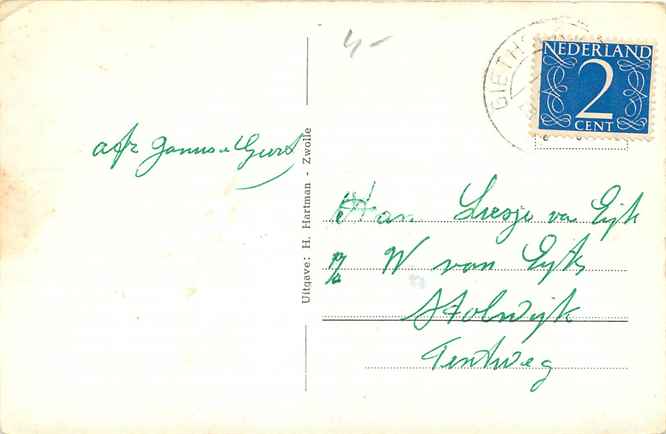 4,-
GIETH
NEDERLAND
2
CENT
afz Janus & Geert
Uitgave: H. Hartman - Zwolle
Aan Liesje van Eijk
p/a W van Eijk
Stolwijk
Tentweg